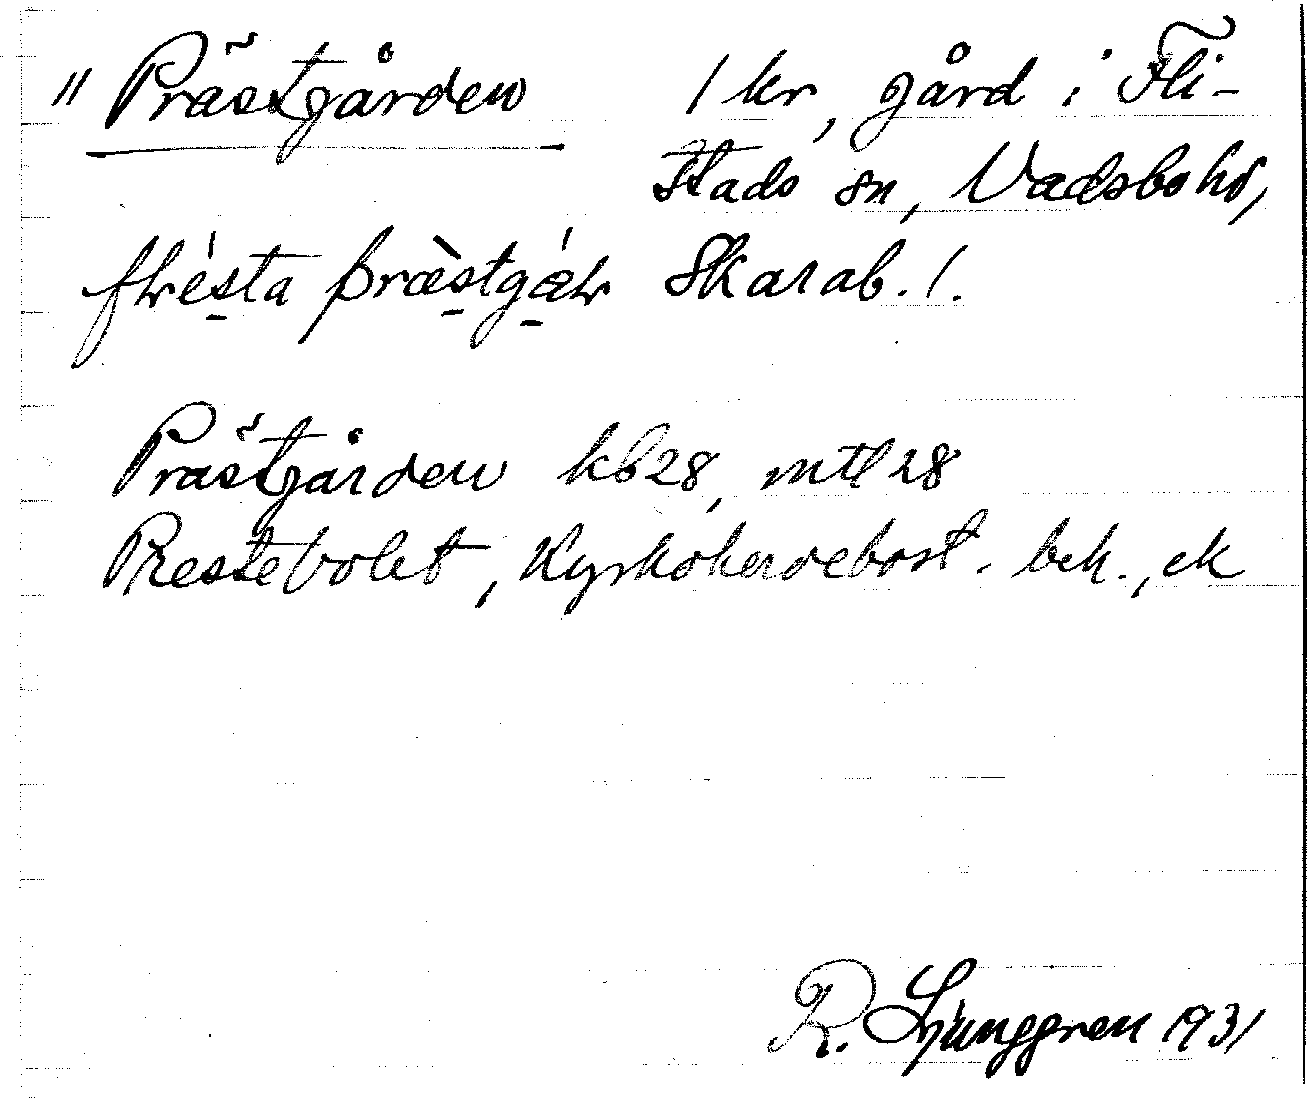 " Prästgården 1 kr, gård i Fli-
stads sn, Vadsbo hd,
præstgár Skarab. l.
Prästgården kb 28, mtl 28
Prestebolet, Kyrkoherdebost. bek., ek
R. Ljunggren 1931